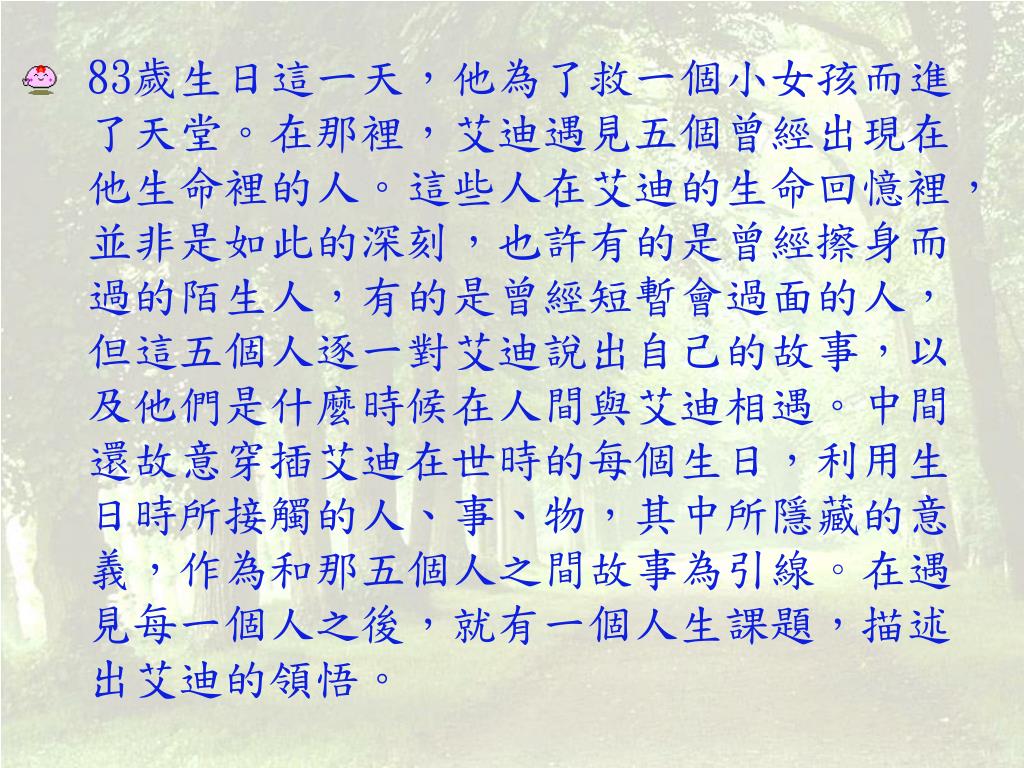 83歲生日這一天，他為了救一個小女孩而進
了天堂。在那裡，艾迪遇見五個曾經出現在
他生命裡的人。這些人在艾迪的生命回憶裡，
並非是如此的深刻，也許有的是曾經擦身而
過的陌生人，有的是曾經短暫會過面的人，
但這五個人逐一對艾迪說出自己的故事，以
及他們是什麼時候在人間與艾迪相遇。中間
還故意穿插艾迪在世時的每個生日，利用生
日時所接觸的人、事、物，其中所隱藏的意
義，作為和那五個人之間故事為引線。在遇
見每一個人之後，就有一個人生課題，描述
出艾迪的領悟。